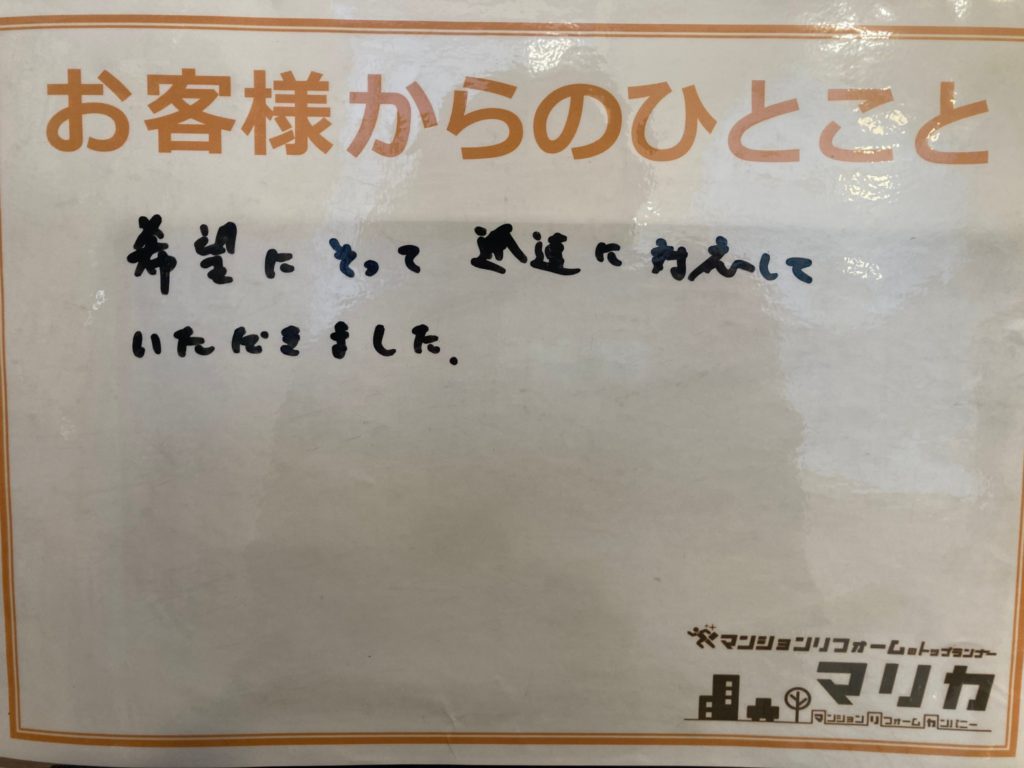 お客様からのひとこと
希望にそって 迅速に対応して
いただきました.
マンションリフォームのトップランナー
マリカ
マンションリフォームカンパニー